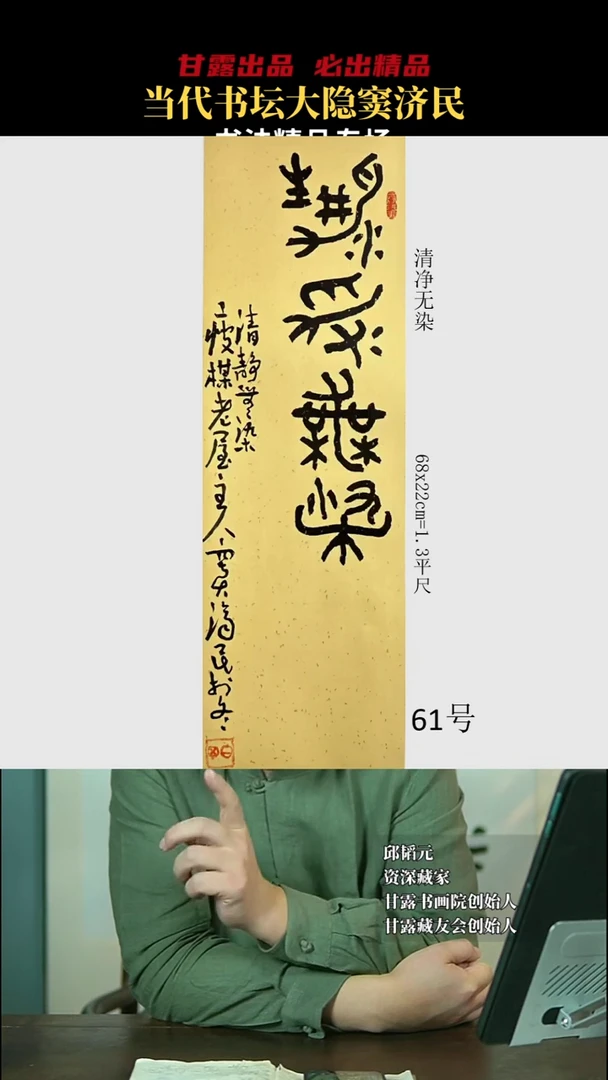 甘露出品 必出精品
当代书坛大隐窦济民
书法精品专场
清静無染
清静無染
老屋主人窦济民
清净无染
68x22cm=1.3平尺
61号
邱韬元
资深藏家
甘露书画院创始人
甘露藏友会创始人